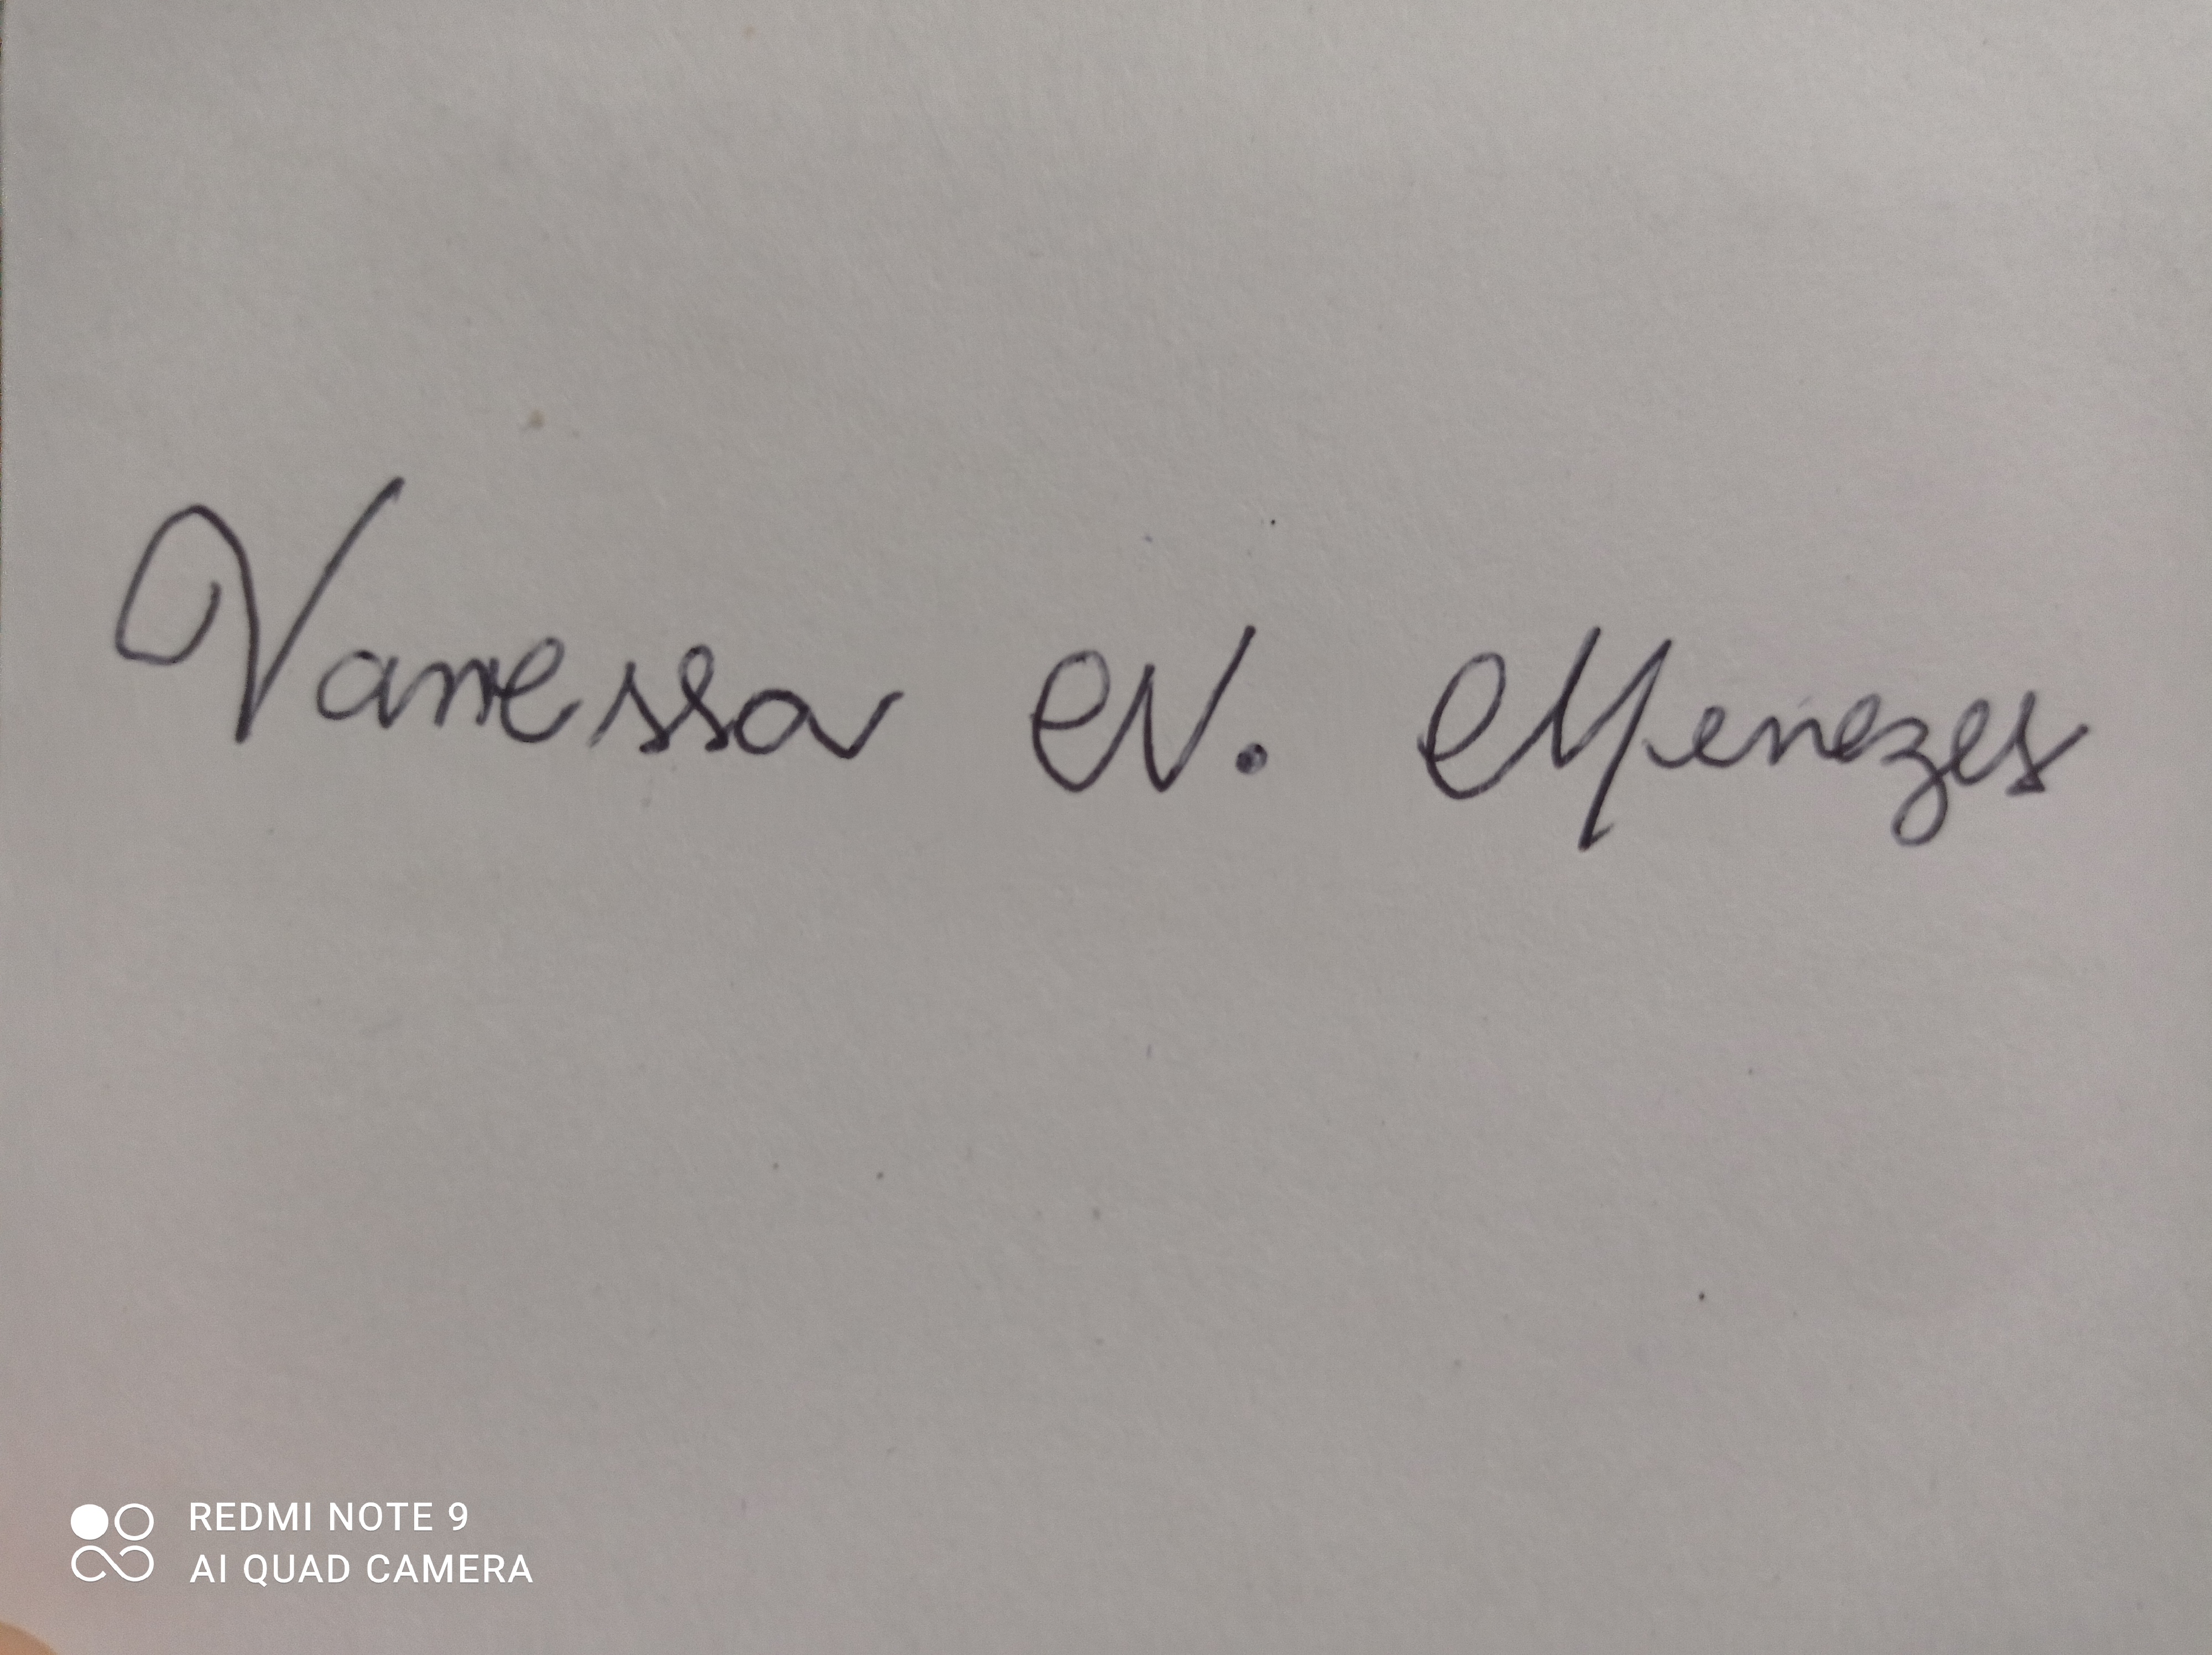 Vanessa N. Menezes
REDMI NOTE 9
AI QUAD CAMERA